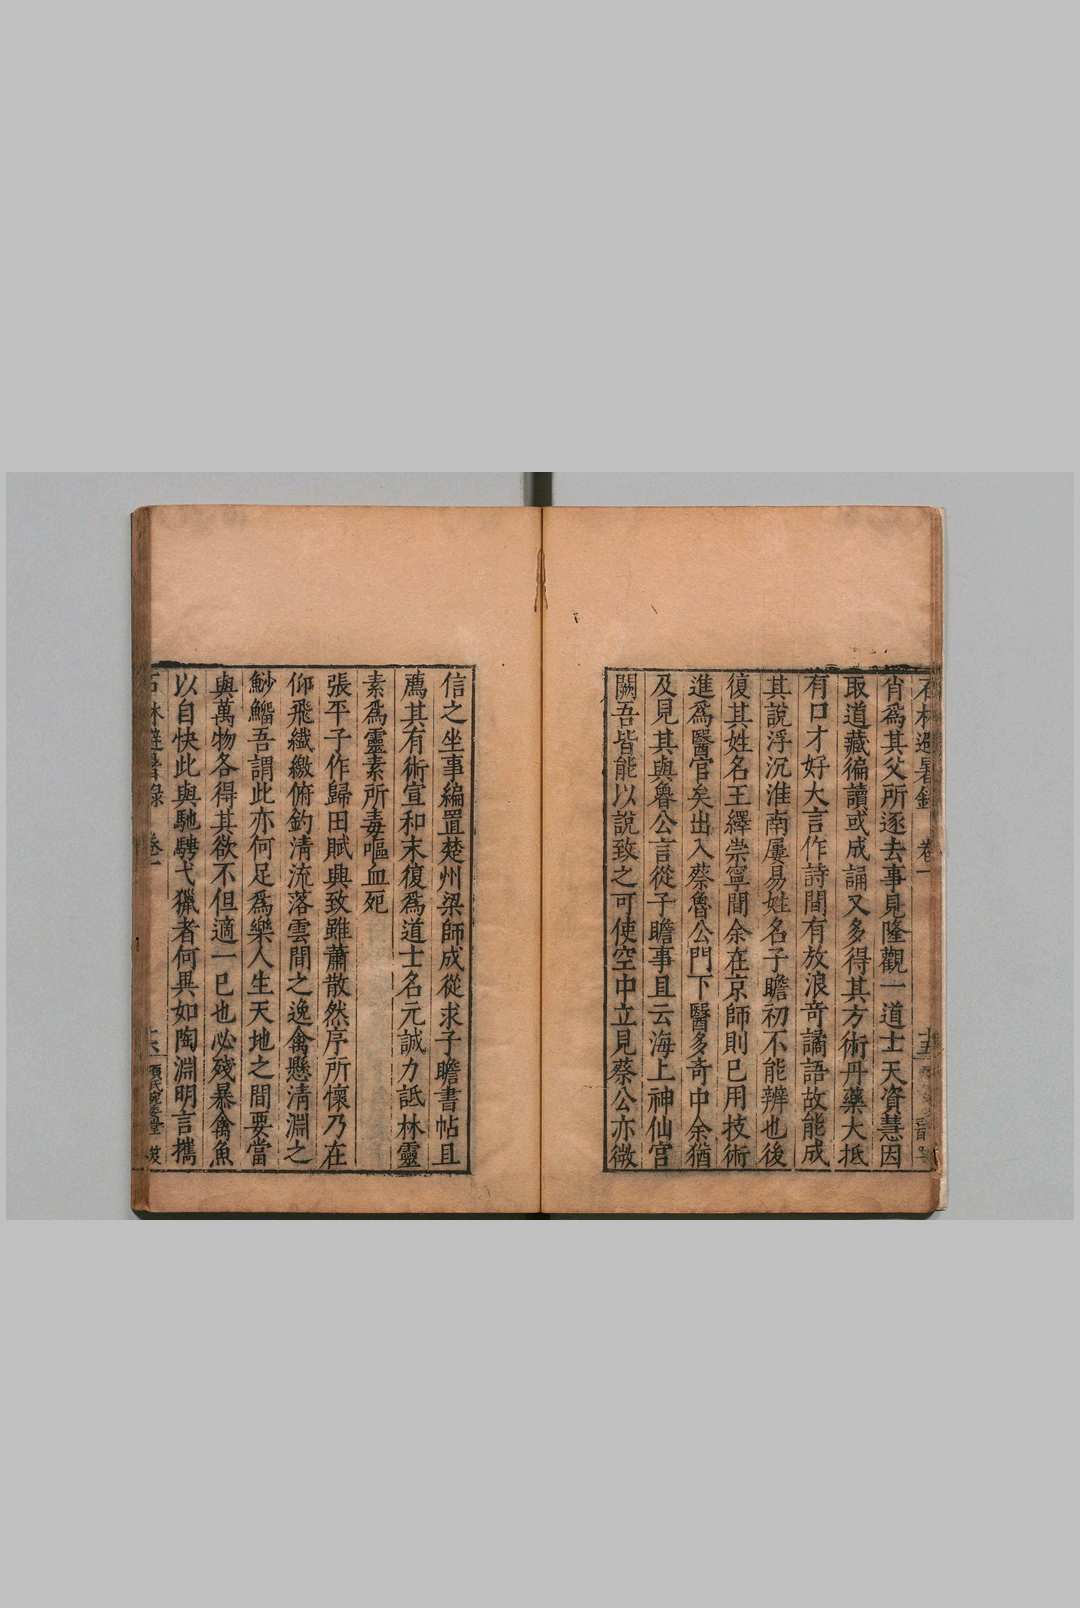 石林避暑錄 卷一 十五
肖爲其父所逐去事見隆觀一道士天資慧因
取道藏徧讀或成誦又多得其方術丹藥大抵
有口才好大言作詩間有放浪奇譎語故能成
其說浮沉淮南屢易姓名子瞻初不能辨也後
復其姓名王繹崇寧間余在京師則已用技術
進爲醫官矣出入蔡魯公門下醫多奇中余猶
及見其與魯公言從子瞻事且云海上神仙宮
闕吾皆能以說致之可使空中立見蔡公亦微
信之坐事編置楚州梁師成從求子瞻書帖且
薦其有術宣和末復爲道士名元誠力詆林靈
素爲靈素所毒嘔血死
張平子作歸田賦興致雖蕭散然序所懷乃在
仰飛纖繳俯釣清流落雲間之逸禽懸清淵之
魦鰡吾謂此亦何足爲樂人生天地之間要當
與萬物各得其欲不但適一己也必殘暴禽魚
以自快此與馳騁弋獵者何異如陶淵明言攜
石林避暑錄 卷一 十六 項氏宛委堂